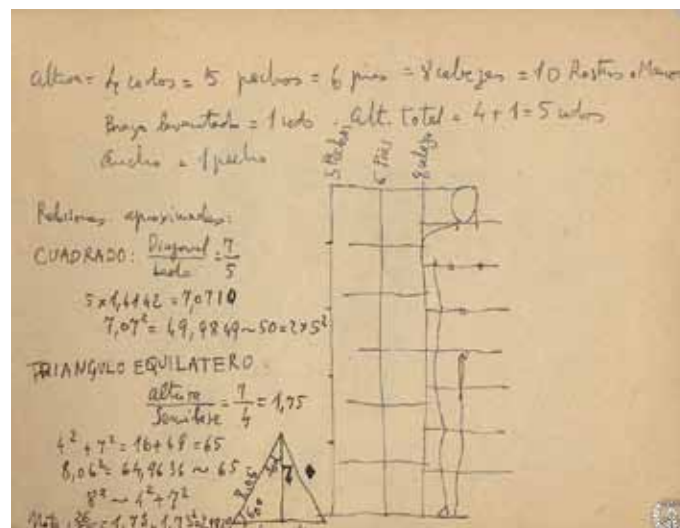 Altura = 4 codos = 5 pechos = 6 pies = 8 cabezas = 10 Rostros o Manos
Brazo levantado = 1 codo . Alt. Total = 4 + 1 = 5 codos
Ancho = 1 pecho
5 Pechos
6 Pies
8 cabezas
Relaciones aproximadas:
CUADRADO: Diagonal / Lado = 7 / 5
5 x 1,4142 = 7,0710
7,07² = 49,9849 ~ 50 = 2 x 5²
TRIANGULO EQUILATERO
altura / Semibase = 7 / 4 = 1,75
4² + 7² = 16 + 49 = 65
8,06² = 64,9636 ~ 65
8² ~ 4² + 7²
7
60